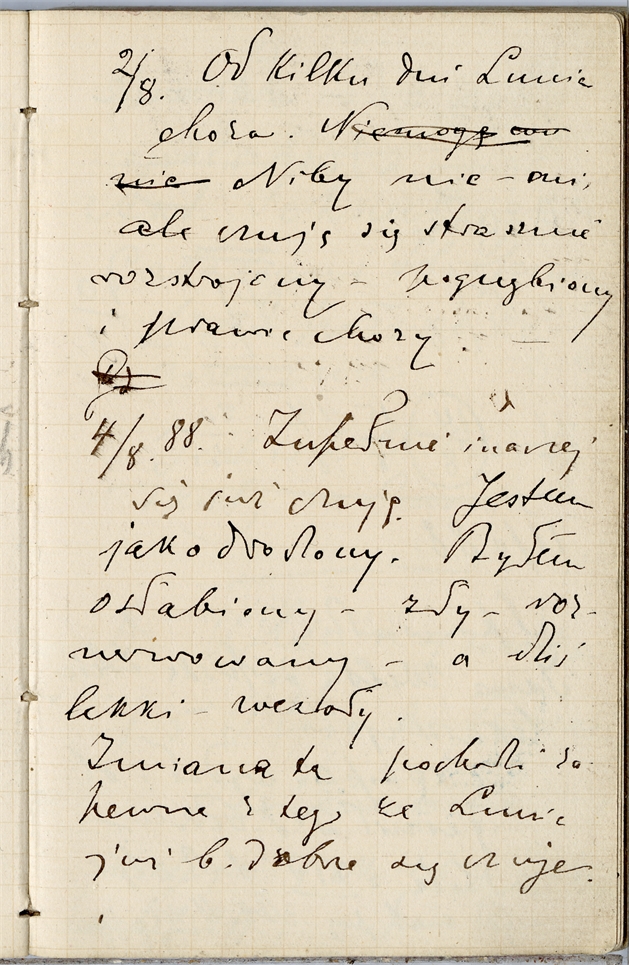 2/8. Od kilku dni Lunia
chora. Niemogę
nic Niby nic - oni,
ale czuję się strasznie
rozstrojony - pognębiony
i prawie chory.
4/8. 88. Zupełnie inaczej
się już czuję. Jestem
jako odrodzony. Byłem
osłabiony - zły - roz-
nerwowany - a dziś
lekki - wesoły.
Zmiana ta pochodzi za-
pewne z tego że Lunia
już b. dobrze się czuje.